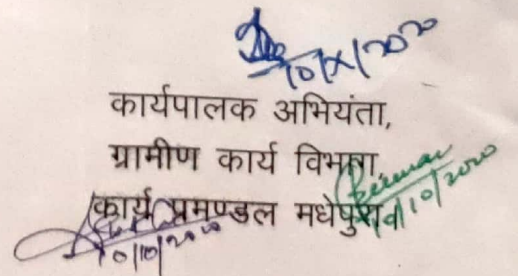 10/X/2020
कार्यपालक अभियंता,
ग्रामीण कार्य विभाग
कार्य प्रमण्डल मधेपुरा
10/10/2020
10/10/2020